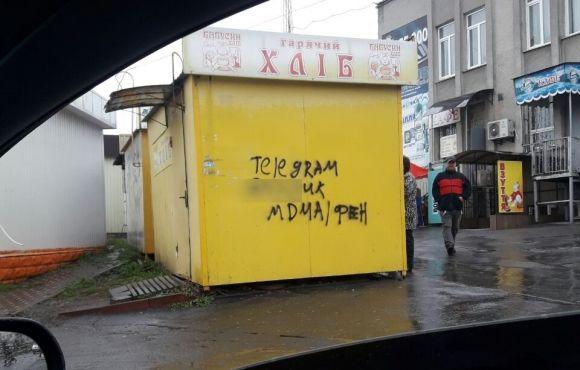 БАБУСИН ХЛІБ
гарячий
ХЛІБ
БАБУСИН ХЛІБ
Telegram
ик
МДМА/ФЕН
ВЗУТТЯ